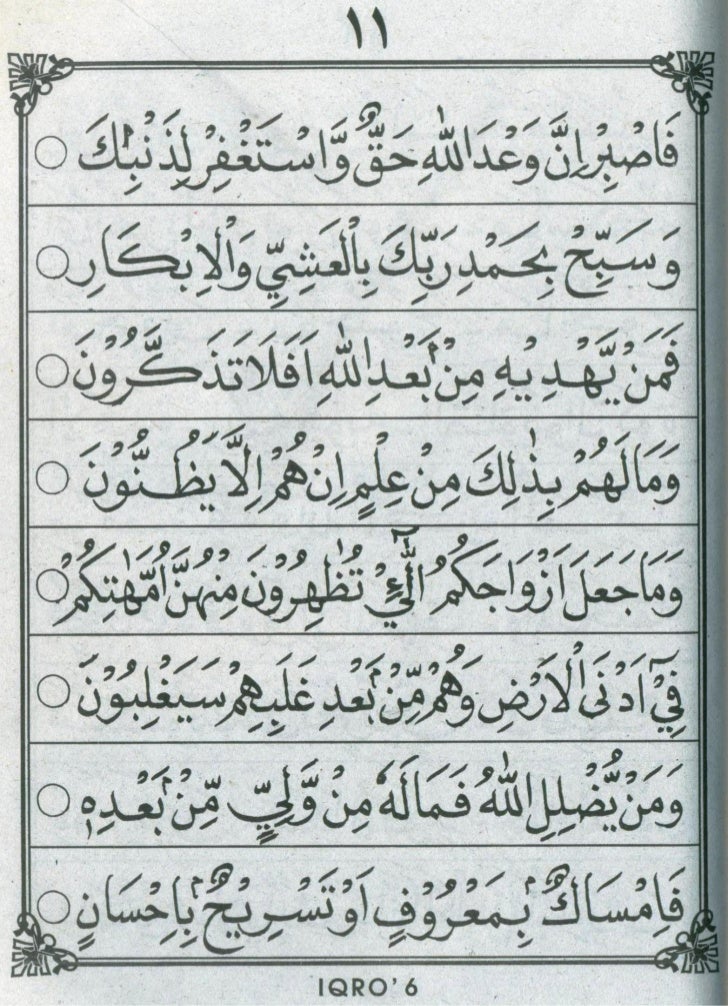 ١١
فَاصْبِرْ اِنَّ وَعْدَ اللّٰهِ حَقٌّ وَّاسْتَغْفِرْ لِذَنْۢبِكَ
وَسَبِّحْ بِحَمْدِ رَبِّكَ بِالْعَشِيِّ وَالْاِبْكَارِ
فَمَنْ يَّهْدِيْهِ مِنْۢ بَعْدِ اللّٰهِ اَفَلَا تَذَكَّرُوْنَ
وَمَا لَهُمْ بِذٰلِكَ مِنْ عِلْمٍ اِنْ هُمْ اِلَّا يَظُنُّوْنَ
وَمَا جَعَلَ اَزْوَاجَكُمُ الّٰٓـِٔيْ تُظٰهِرُوْنَ مِنْهُنَّ اُمَّهٰتِكُمْ
فِيْٓ اَدْنَى الْاَرْضِ وَهُمْ مِّنْۢ بَعْدِ غَلَبِهِمْ سَيَغْلِبُوْنَ
وَمَنْ يُّضْلِلِ اللّٰهُ فَمَا لَهٗ مِنْ وَّلِيٍّ مِّنْۢ بَعْدِهٖ
فَاِمْسَاكٌۢ بِمَعْرُوْفٍ اَوْ تَسْرِيْحٌۢ بِاِحْسَانٍ
IQRO' 6